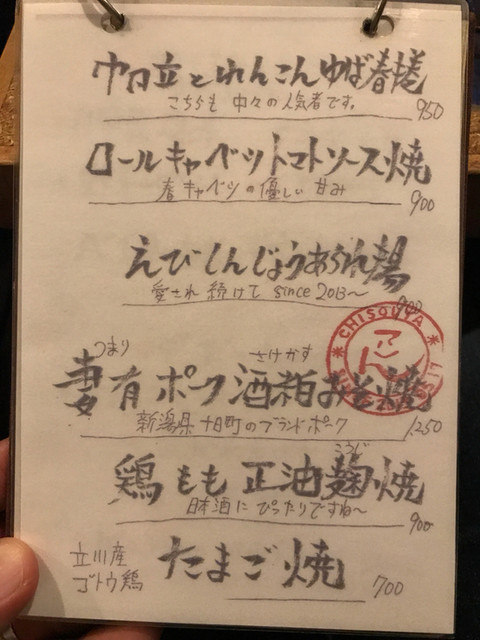 帆立とれんこんゆば春捲
こちらも 中々の人気者です。 950
ロールキャベツトマトソース焼
春キャベツの優しい甘み 900
えびしんじょうあられ揚
愛され続けて since 2013〜 900
CHISOUYA
つまり さけかす
妻有ポーク酒粕みそ焼
新潟県十日町のブランドポーク 1,250
こうじ
鶏もも正油麹焼
日本酒にぴったりですね〜 900
立川産
ゴトウ鶏
たまご焼 700